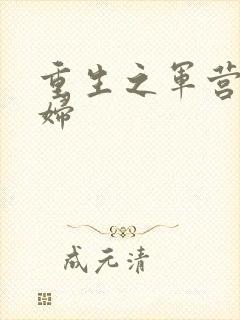 重生之军营
妇
成元清